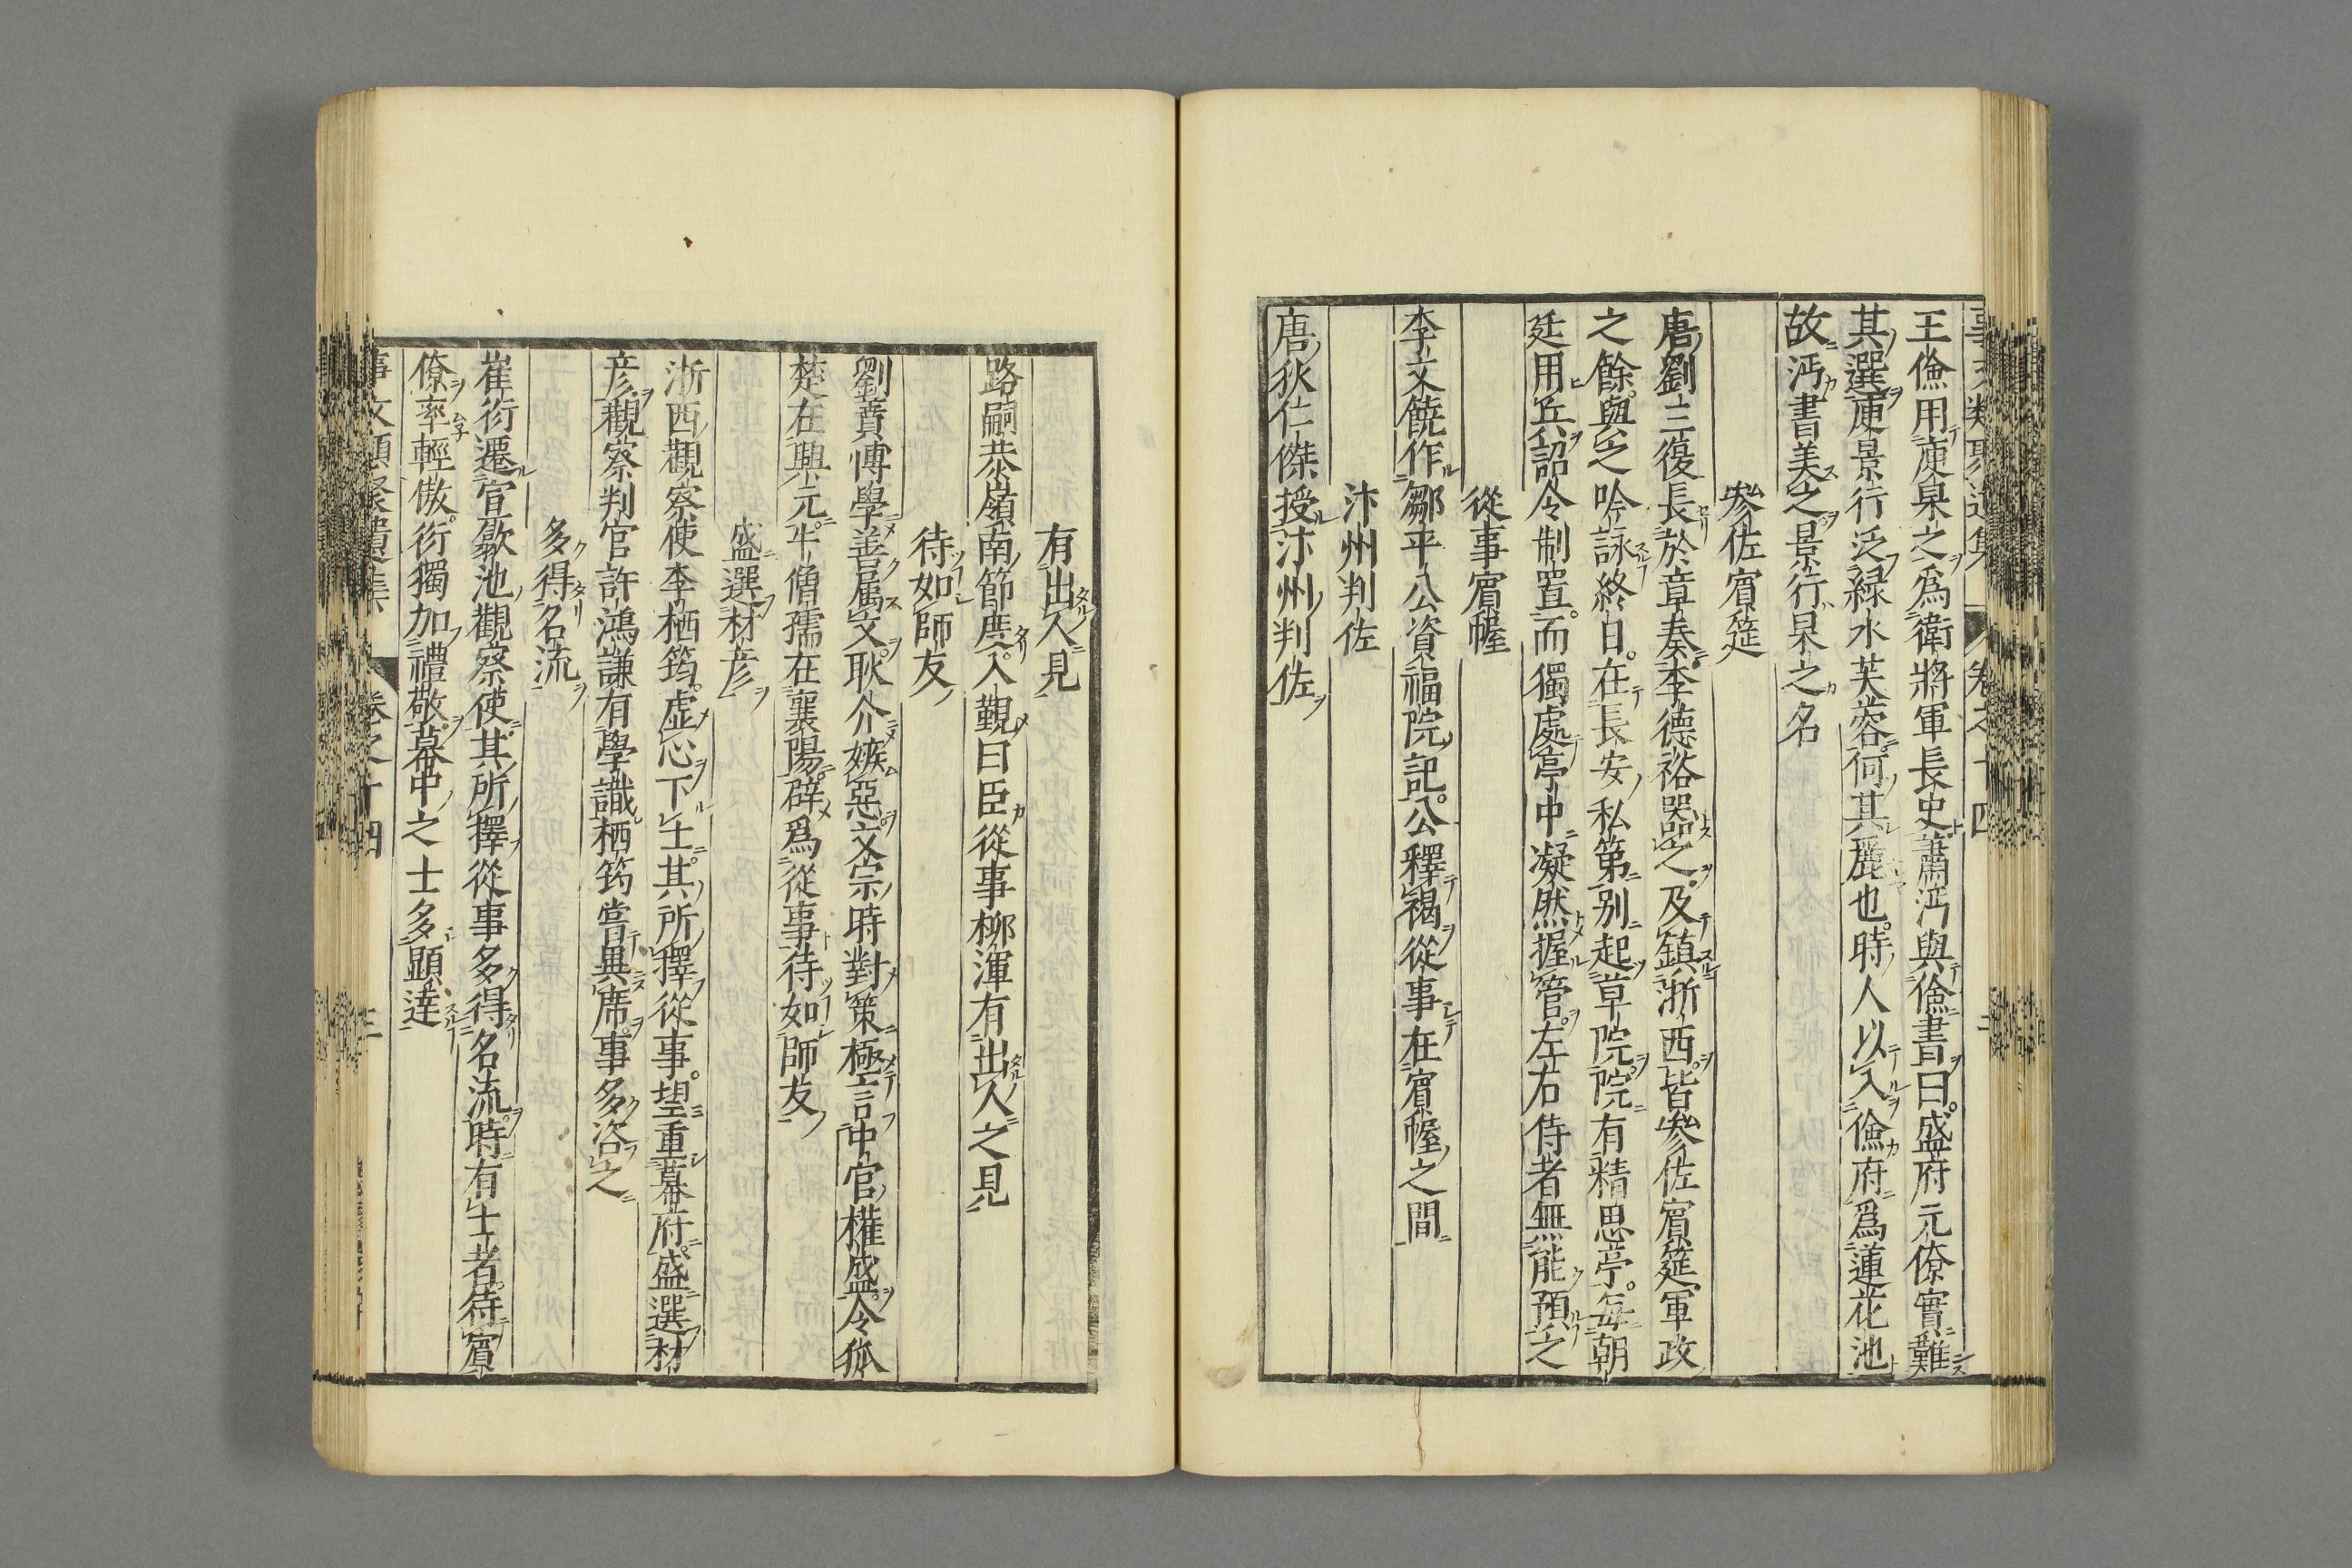 王儉用庾杲之爲衛將軍長史蕭沔與儉書曰盛府元僚實難
其選庾景行泛緑水芙蓉何其麗也時人以入儉府爲蓮花池
故沔書美之景行杲之名
參佐賓筵
唐劉三復長於章奏李德裕器之及鎮浙西皆參佐賓筵軍政
之餘與之吟詠終日在長安私第别起草院院有精思亭每朝
廷用兵詔令制置而獨處亭中凝然握管左右侍者無能預之
從事賓幄
李文饒作鄒平公資福院記公釋褐從事在賓幄之間
汴州判佐
唐狄仁傑授汴州判佐
有出人見
路嗣恭嶺南節度入覲曰臣從事柳渾有出人之見
待如師友
劉蕡博學善属文耿介嫉惡文宗時對策極言中官權盛令狐
楚在興元牛僧孺在襄陽辟爲從事待如師友
盛選材彦
浙西觀察使李栖筠虚心下士其所擇從事望重幕府盛選材
彦觀察判官許鴻謙有學識栖筠嘗異席事多咨之
多得名流
崔衍遷宣歙池觀察使其所擇從事多得名流時有士者待賓
僚率輕傲衍獨加禮敬幕中之士多顯達
事文類聚遺集 卷之十四 三